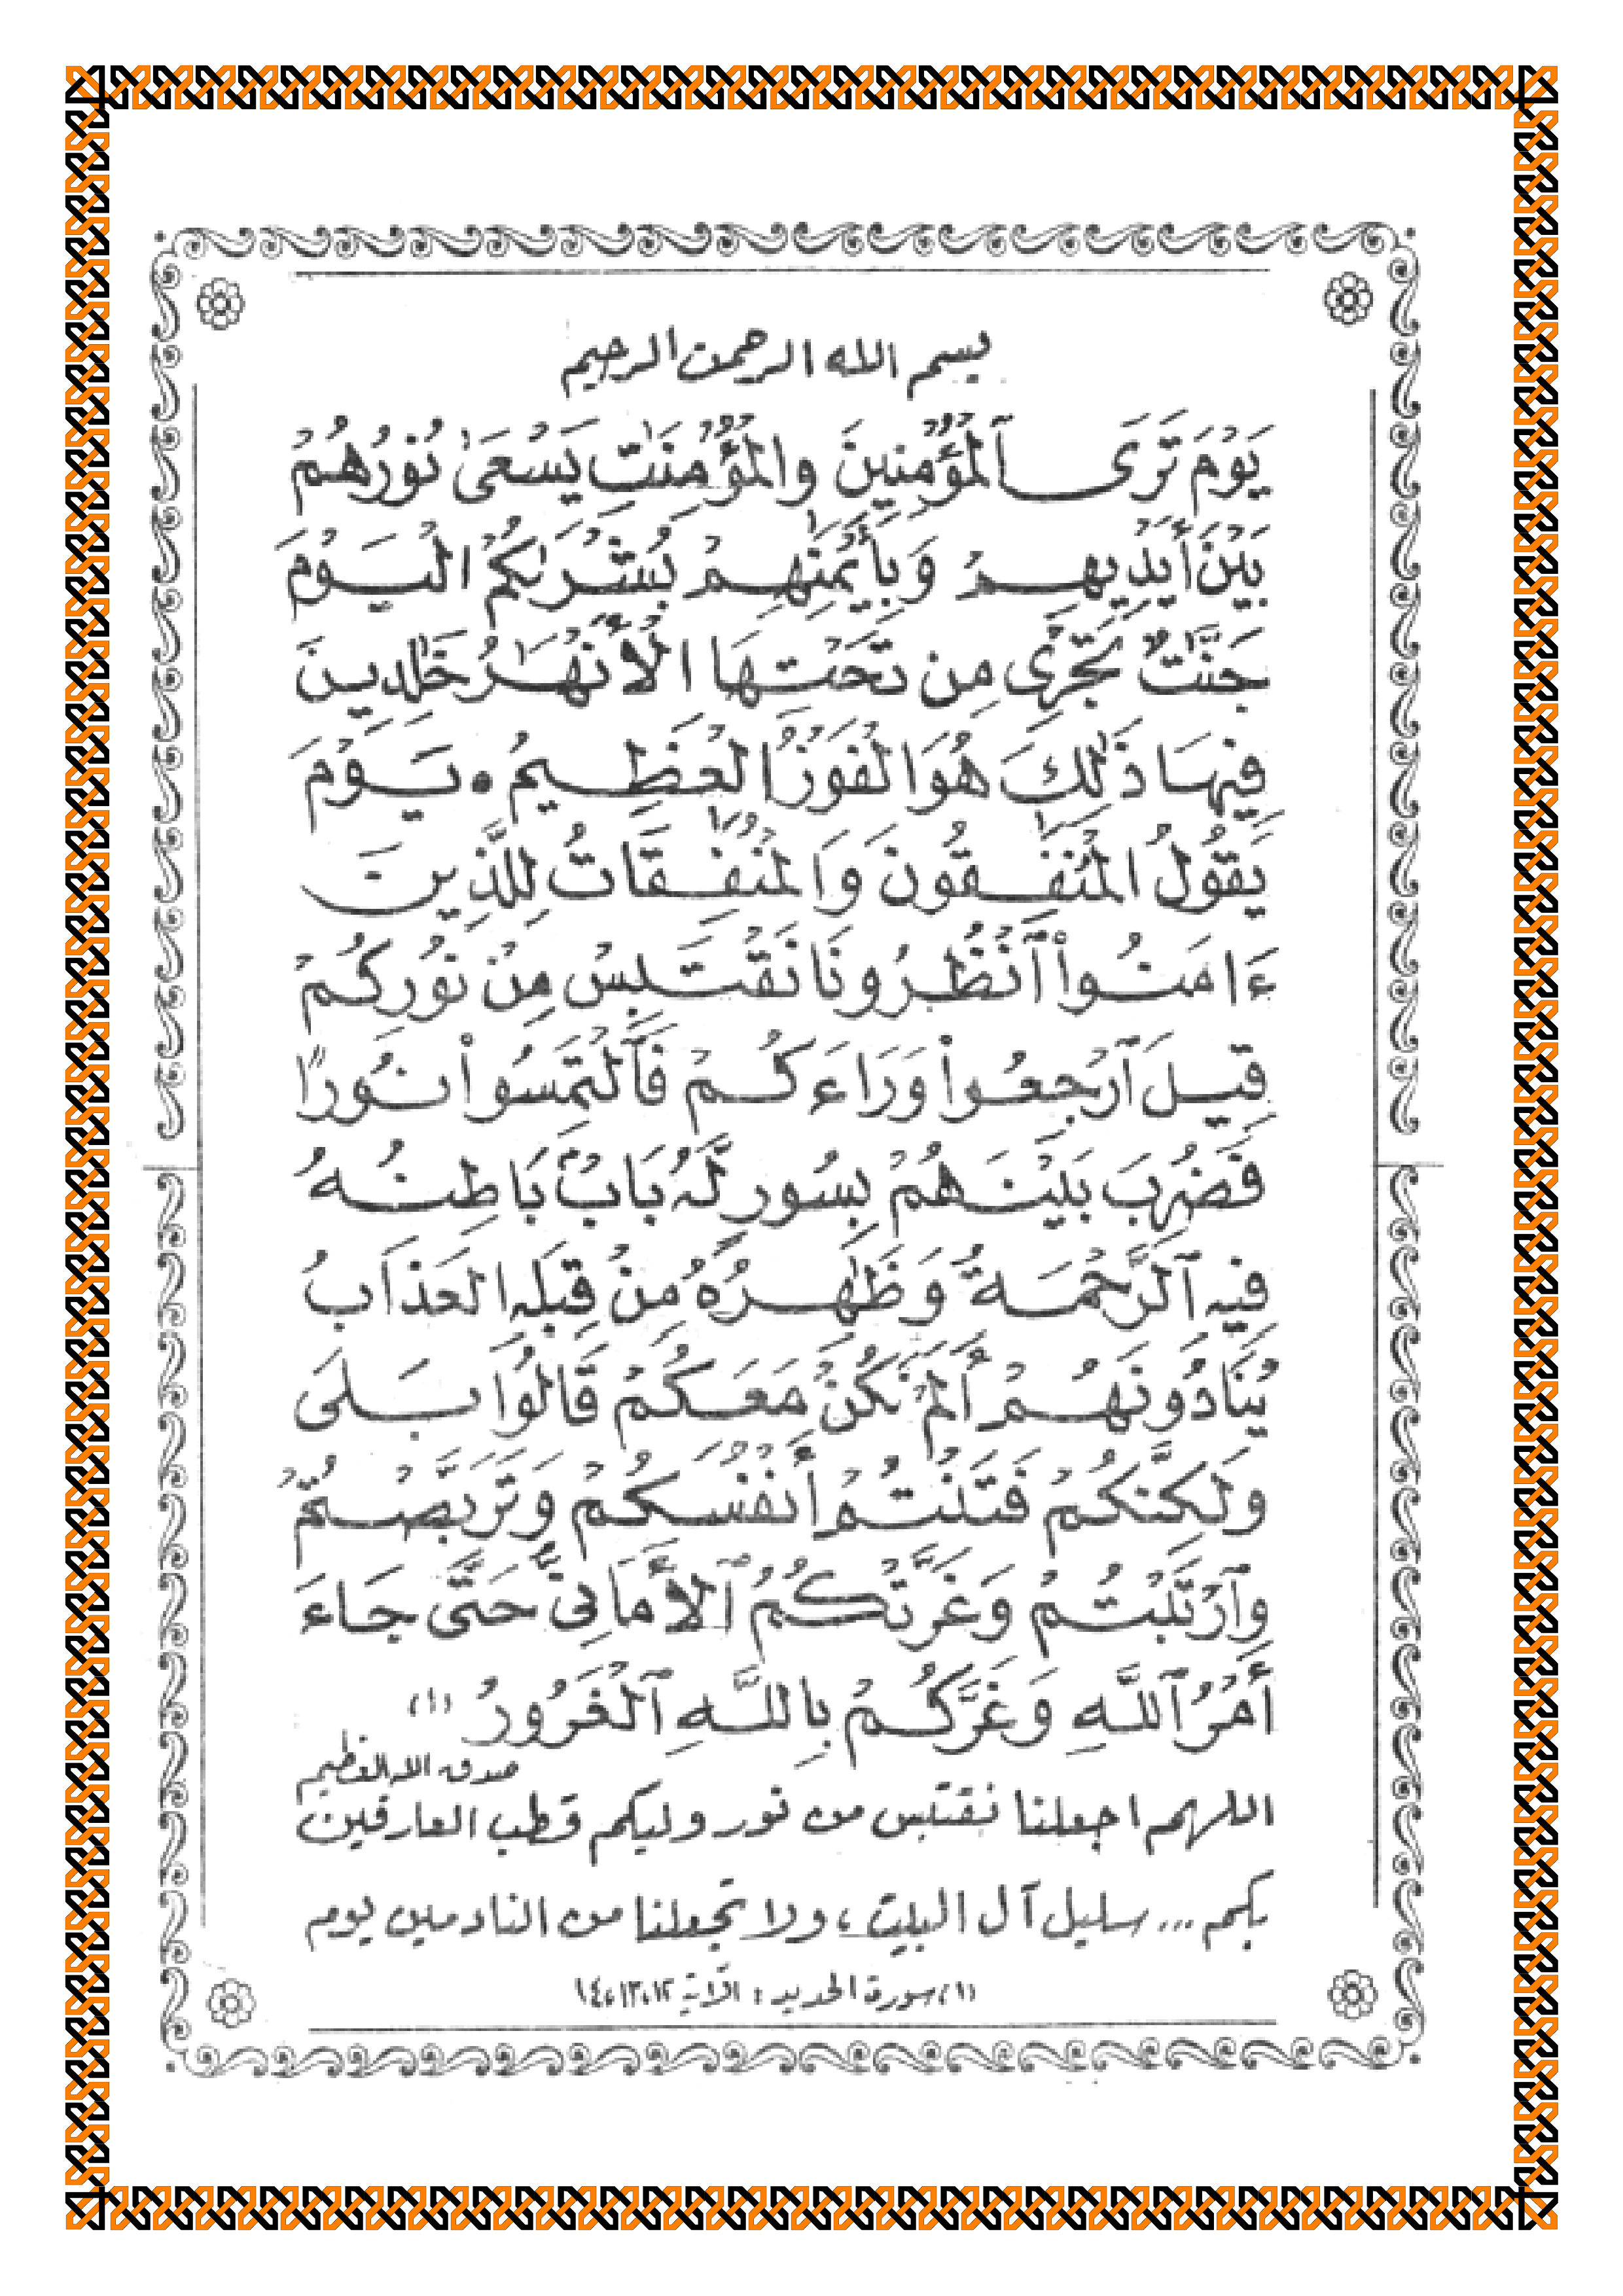 بسم الله الرحمن الرحيم
يَوْمَ تَرَى ٱلْمُؤْمِنِينَ والْمُؤْمِنَٰتِ يَسْعَىٰ نُورُهُمْ
بَيْنَ أَيْدِيهِمْ وَبِأَيْمَٰنِهِمْ بُشْرَىٰكُمُ الْيَوْمَ
جَنَّٰتٌ تَجْرِى مِن تَحْتِهَا الْأَنْهَٰرُ خَٰلِدِينَ
فِيهَا ذَٰلِكَ هُوَ الْفَوْزُ الْعَظِيمُ • يَوْمَ
يَقُولُ الْمُنَٰفِقُونَ وَالْمُنَٰفِقَاتُ لِلَّذِينَ
ءَامَنُواْ ٱنْظُرُونَا نَقْتَبِسْ مِنْ نُورِكُمْ
قِيلَ ٱرْجِعُواْ وَرَاءَكُمْ فَٱلْتَمِسُواْ نُورًا
فَضُرِبَ بَيْنَهُمْ بِسُورٍ لَّهُ بَابٌ بَاطِنُهُ
فِيهِ ٱلرَّحْمَةُ وَظَٰهِرُهُ مِنْ قِبَلِهِ العَذَابُ
يُنَادُونَهُمْ أَلَمْ نَكُنْ مَعَكُمْ قَالُوا بَلَى
وَلَكِنَّكُمْ فَتَنْتُمْ أَنْفُسَكُمْ وَتَرَبَّصْتُمْ
وَٱرْتَبْتُمْ وَغَرَّتْكُمُ ٱلْأَمَانِيُّ حَتَّى جَاءَ
أَمْرُ ٱللَّهِ وَغَرَّكُمْ بِاللَّهِ ٱلْغَرُورُ (١)
صدق الله العظيم
اللهم اجعلنا نقتبس من نور وليكم قطب العارفين
بكم ... سليل آل البيت، ولا تجعلنا من النادمين يوم
(١) سورة الحديد : الآية ١٢،١٣،١٤